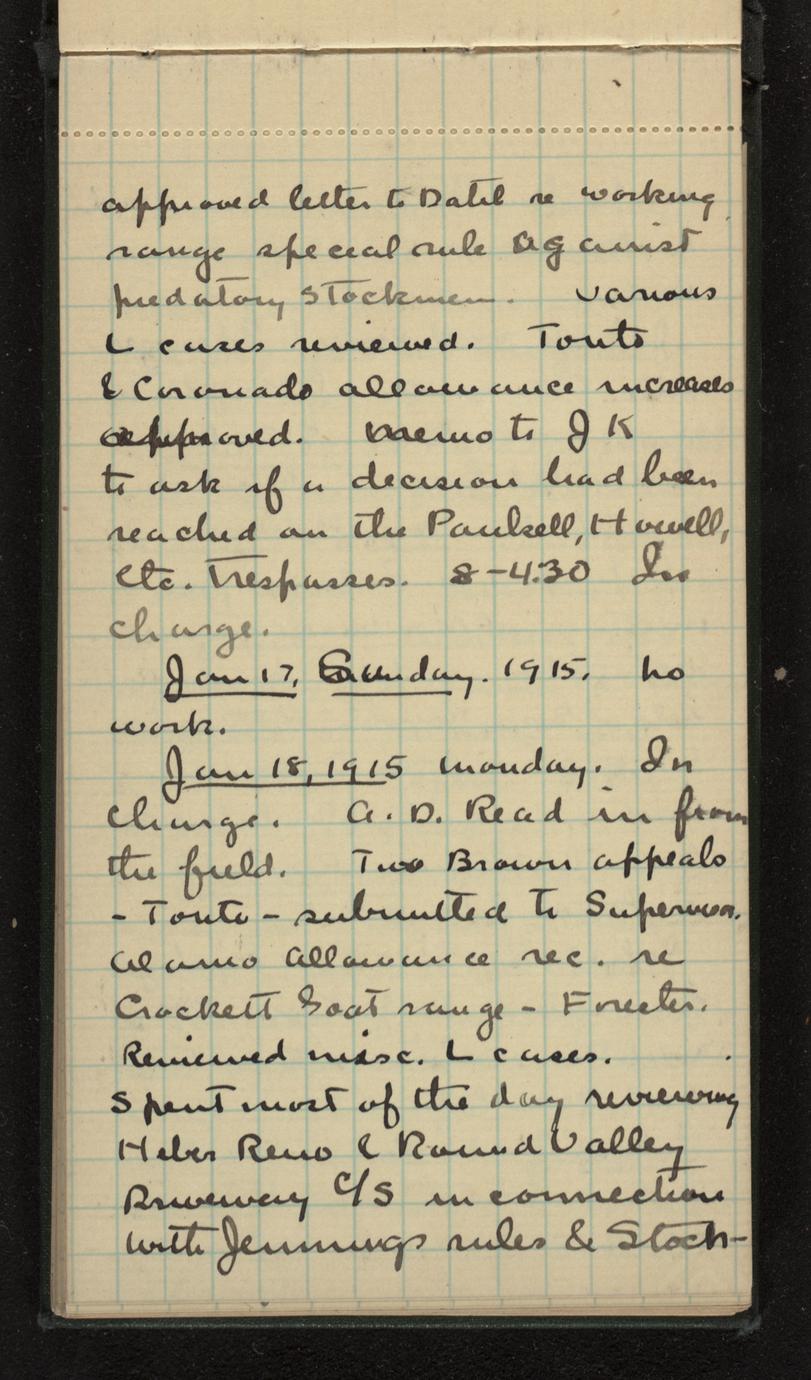 approved letter to Datil re working
range special rule against
predatory stockmen. Various
L cases reviewed. Tonto
& Coronado allowance increases
approved. Memo to J K
to ask if a decision had been
reached on the Paulsell, Howell,
etc. Trespasses. 8-4:30 In
charge.
Jan 17, Sunday. 1915. No
work.
Jan 18, 1915 Monday. In
charge. A. D. Read in from
the field. Two Brown appeals
- Tonto - submitted to Supervisor.
Alamo Allowance rec. re
Crockett Goat range - Forester.
Reviewed misc. L cases.
Spent most of the day reviewing
Heber Reno & Round Valley
Driveway C/S in connection
with Jennings rules & Stock-